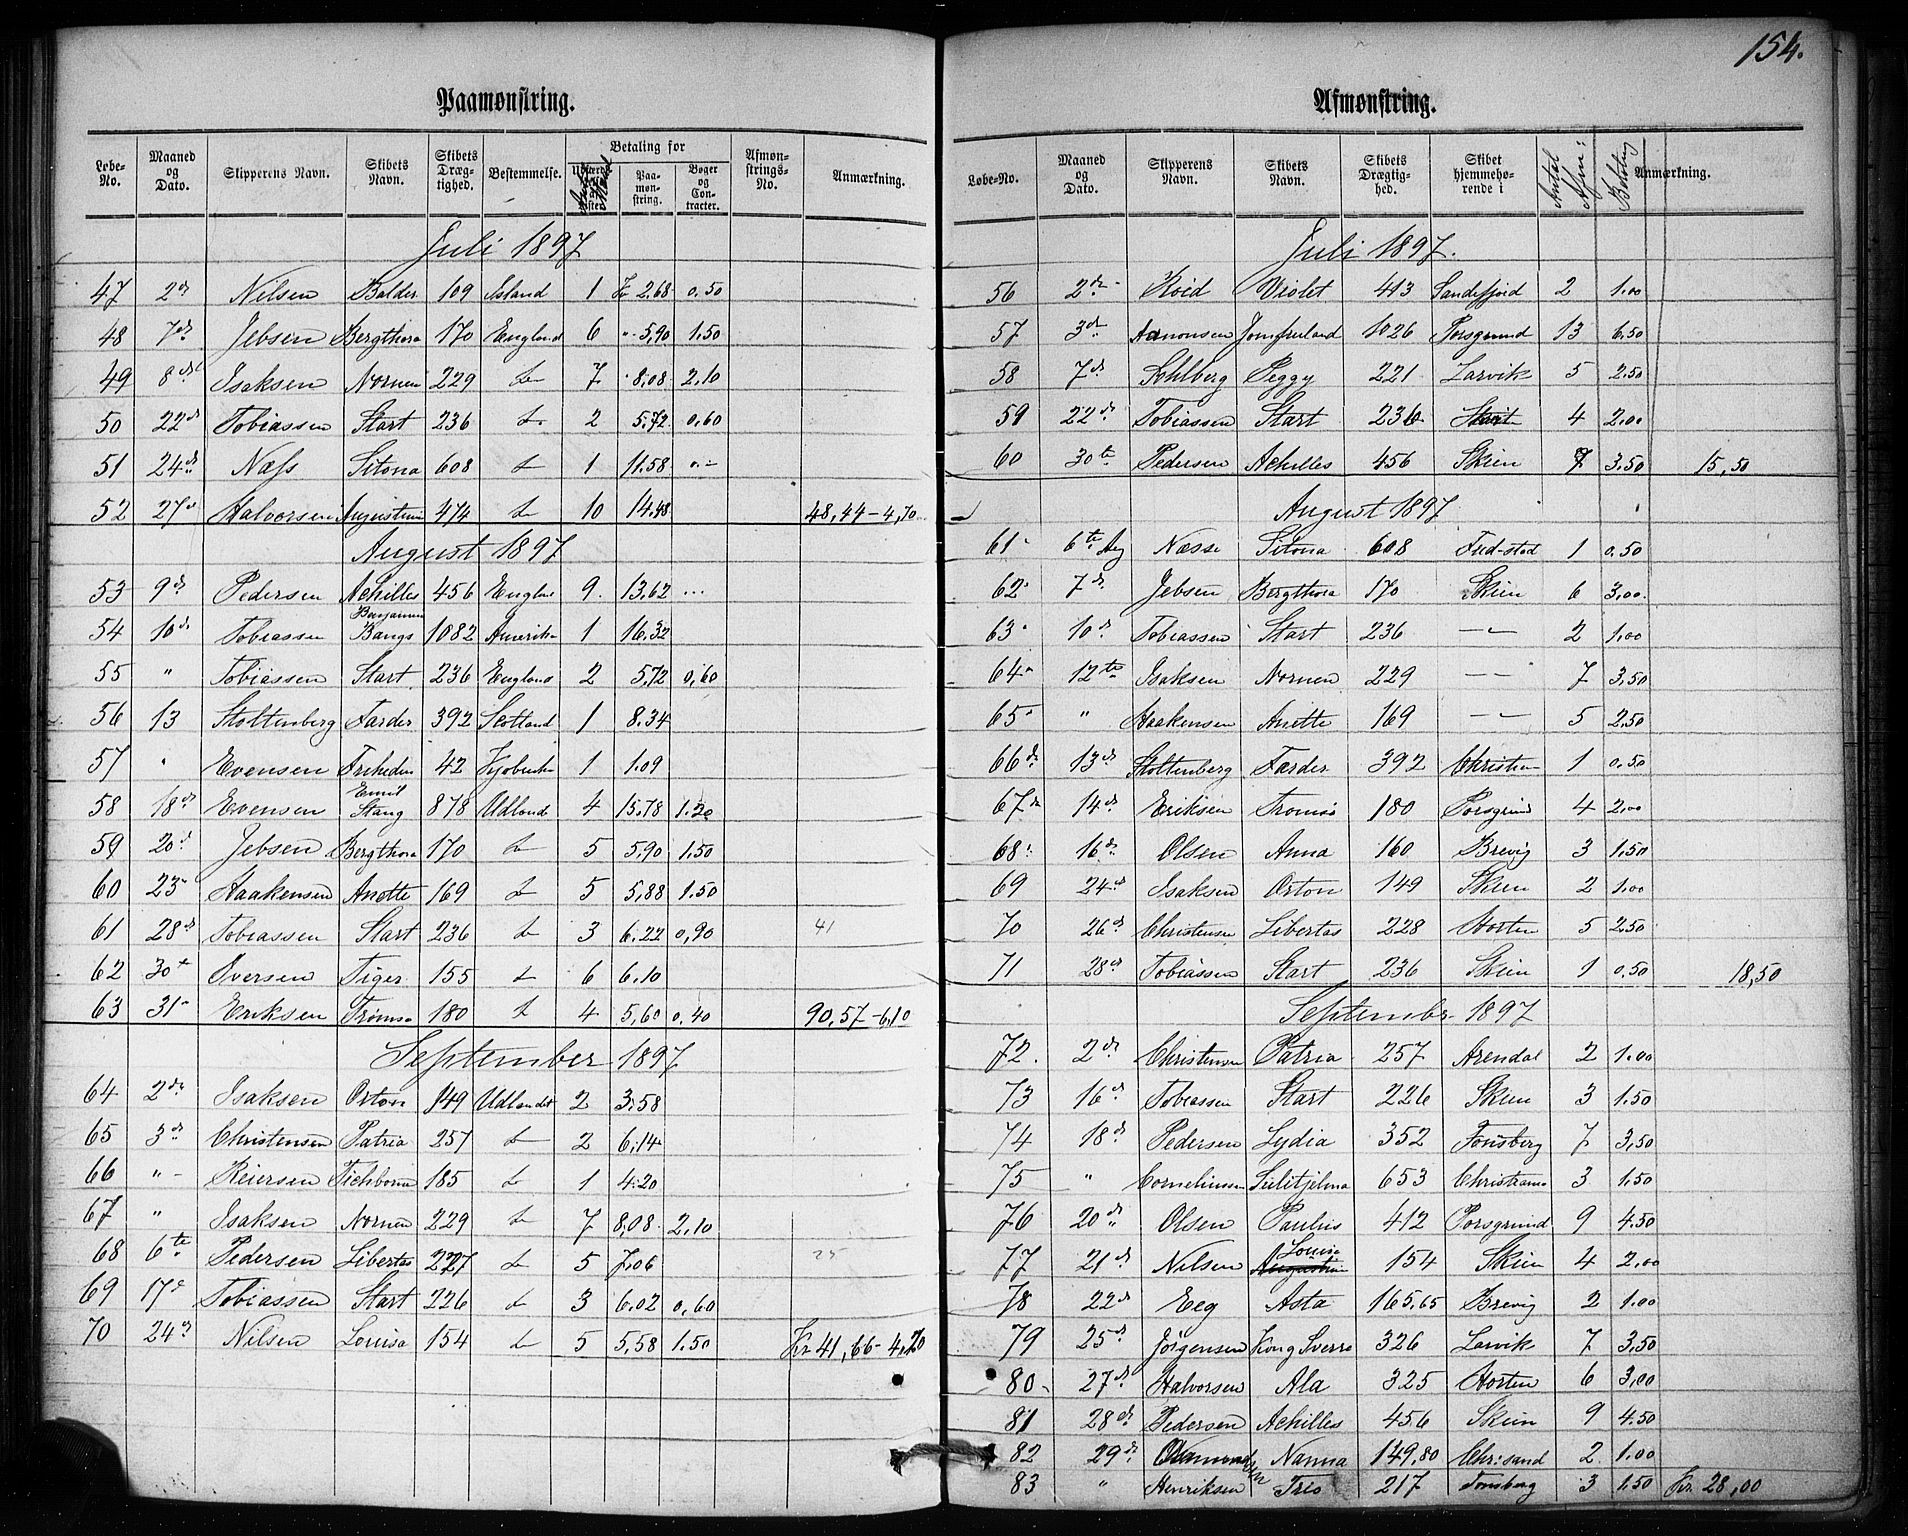 154.
Paamønstring.
Løbe-No. Maaned og Dato. Skipperens Navn. Skibets Navn. Skibets Drægtighed. Bestemmelse. Betaling for Paamønstring. Bøger og Contracter. Afmønstrings-No. Anmærkning.
Juli 1897
47 2de Nilsen Balder 109 Island 1 Kr 2,68 0,50
48 7de Jebsen Bergthora 170 England 6 " 5,90 1,50
49 8de Isaksen Nornen 229 do 7 8,08 2,10
50 22de Tobiassen Start 236 do 2 5,72 0,60
51 24de Næss Sitona 608 do 1 11.58 0.-
52 27de Halvorsen Augustinus 474 do 10 14.48 48,44-4,70
August 1897
53 9de Pedersen Achilles 456 England 9. 13,62 ...
54 10de Tobiassen Benjamin Bangs 1082 Amerika 1 16.32
55 " Tobiassen Start 236 England 2 5,72 0,60
56 13 Stoltenberg Færder 392 Scotland 1 8.34
57 " Evensen Friheden 42 Kjøbenh 1 1.09
58 18de Evensen Emil Stang 878 Udlandet 4 15.78 1.20
59 20de Jebsen Bergthora 170 do 5 5,90 1,50
60 23 Haakensen Anette 169 do 5 5,88 1.50
61 28de Tobiassen Start 236 do 3 6.22 0,90 41
62 30te Iversen Tiger 155 do 6 6.10
63 31 Eriksen Tromsø 180 do 4 5,60 0,40 90,57-6,10
September 1897
64 2de Isaksen Orton 149 Udlandet 2 3.58
65 3de Christensen Patria 257 do 2 6,14
66 " Reiersen Tichborne 185 do 1 4.20
67 " Isaksen Nornen 229 do 7 8,08 2,10
68 6te Pedersen Libertas 227 do 5 7,06 25
69 17de Tobiassen Start 226 do 3 6.02 0,60
70 24de Nilsen Louisa 154 do 5 5,58 1.50 Kr 41,66-4,70
Afmønstring.
Løbe-No. Maaned og Dato. Skipperens Navn. Skibets Navn. Skibets Drægtighed. Skibet hjemmehørende i Antal Afm: Betaling Anmærkning.
Juli 1897.
56 2de Hvid Violet 413 Sandefjord 2 1.00
57 3de Aanonsen Jomfruland 1026 Porsgrund 13 6,50
58 7de Sohlberg Peggy 221 Larvik 5 2.50
59 22de Tobiassen Start 236 4 2.00
60 30te Pedersen Achilles 456 Skien 7 3.50 15,50
August 1897
61 6te Aug Næsse Sitona 608 Fred-stad 1 0.50
62 7de Jebsen Bergthora 170 Skien 6 3,00
63 10de Tobiassen Start 236 -"- 2 1.00
64 12te Isaksen Nornen 229 -"- 7 3,50
65 " Haakensen Anette 169 -"- 5 2.50
66 13de Stoltenberg Færder 392 Christia 1 0.50
67 14de Eriksen Tromsø 180 Porsgrund 4 2,00
68 16de Olsen Anna 160 Brevig 3 1.50
69 24de Isaksen Orton 149 Skien 2 1.00
70 26de Christensen Libertas 228 Horten 5 2.50
71 28de Tobiassen Start 236 Skien 1 0.50 18,50
September 1897
72. 2de Christensen Patria 257 Arendal 2 1.00
73 16de Tobiassen Start 226 Skien 3 1.50
74 18de Pedersen Lydia 352 Tønsberg 7 3,50
75 " Corneliussen Sulitjelma 653 Christiania 3 1.50
76 20de Olsen Paulus 412 Porsgrund 9 4.50
77 21de Nilsen Louisa 154 Skien 4 2,00
78 22de Eeg Asta 165,65 Brevig 2 1.00
79 25de Jørgensen Kong Sverre 326 Larvik 7 3,50
80 27de Halvorsen Ala 325 Horten 6 3,00
81 28de Pedersen Achilles 456 Skien 9 4.50
82 29de Nanna 149,80 Chr:sand 2 1.00
83 " Henriksen Trio 217 Tønsberg 3 1,50 Kr. 28,00